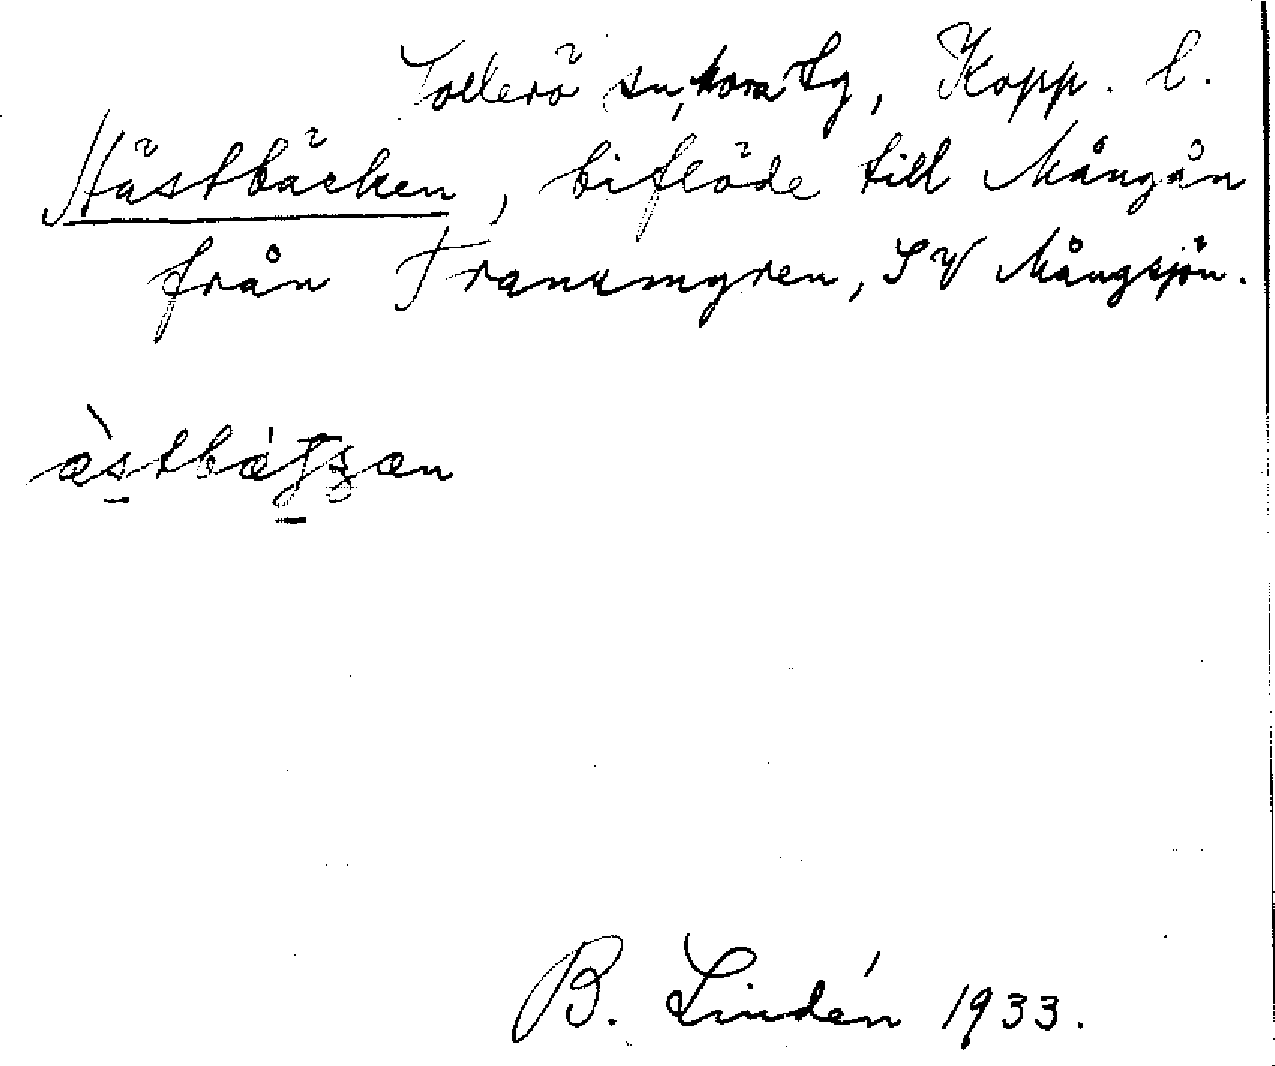 Sollerö sn, Mora tg, Kopp. l.
Hästbäcken, biflöde till Mångån
från Transmyren, SV Mångsjön.
B. Lindén 1933.